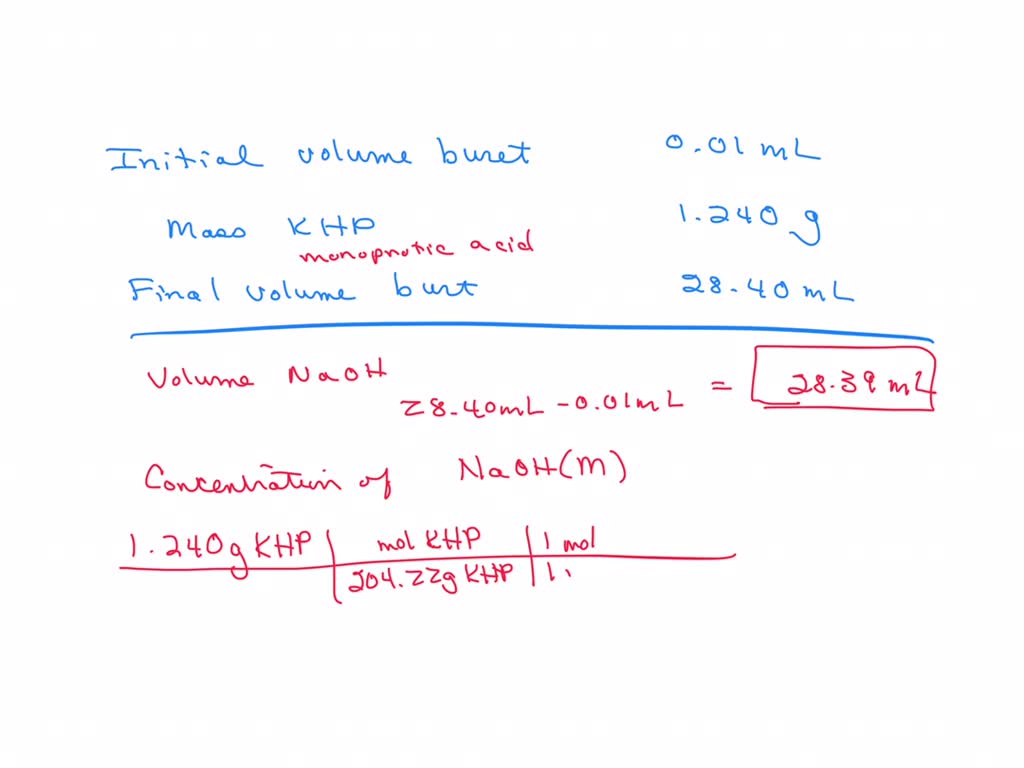 Initial volume buret 0.01 mL
Mass KHP 1.240 g
monoprotic acid
Final volume burt 28.40 mL
Volume NaOH
28.40mL - 0.01mL = 28.39 mL
Concentration of NaOH(M)
1.240g KHP | mol KHP | 1 mol
204.22g KHP | 1